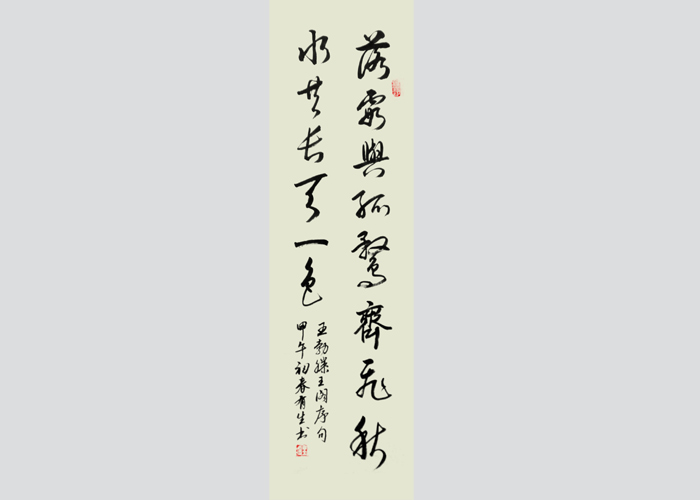 落霞與孤鶩齊飛秋
水共長天一色
王勃滕王閣序句
甲午初春有生書